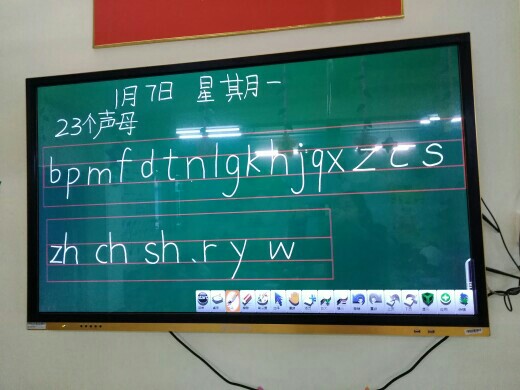 1月7日 星期一
23个声母
b p m f d t n l g k h j q x z c s
zh ch sh r y w